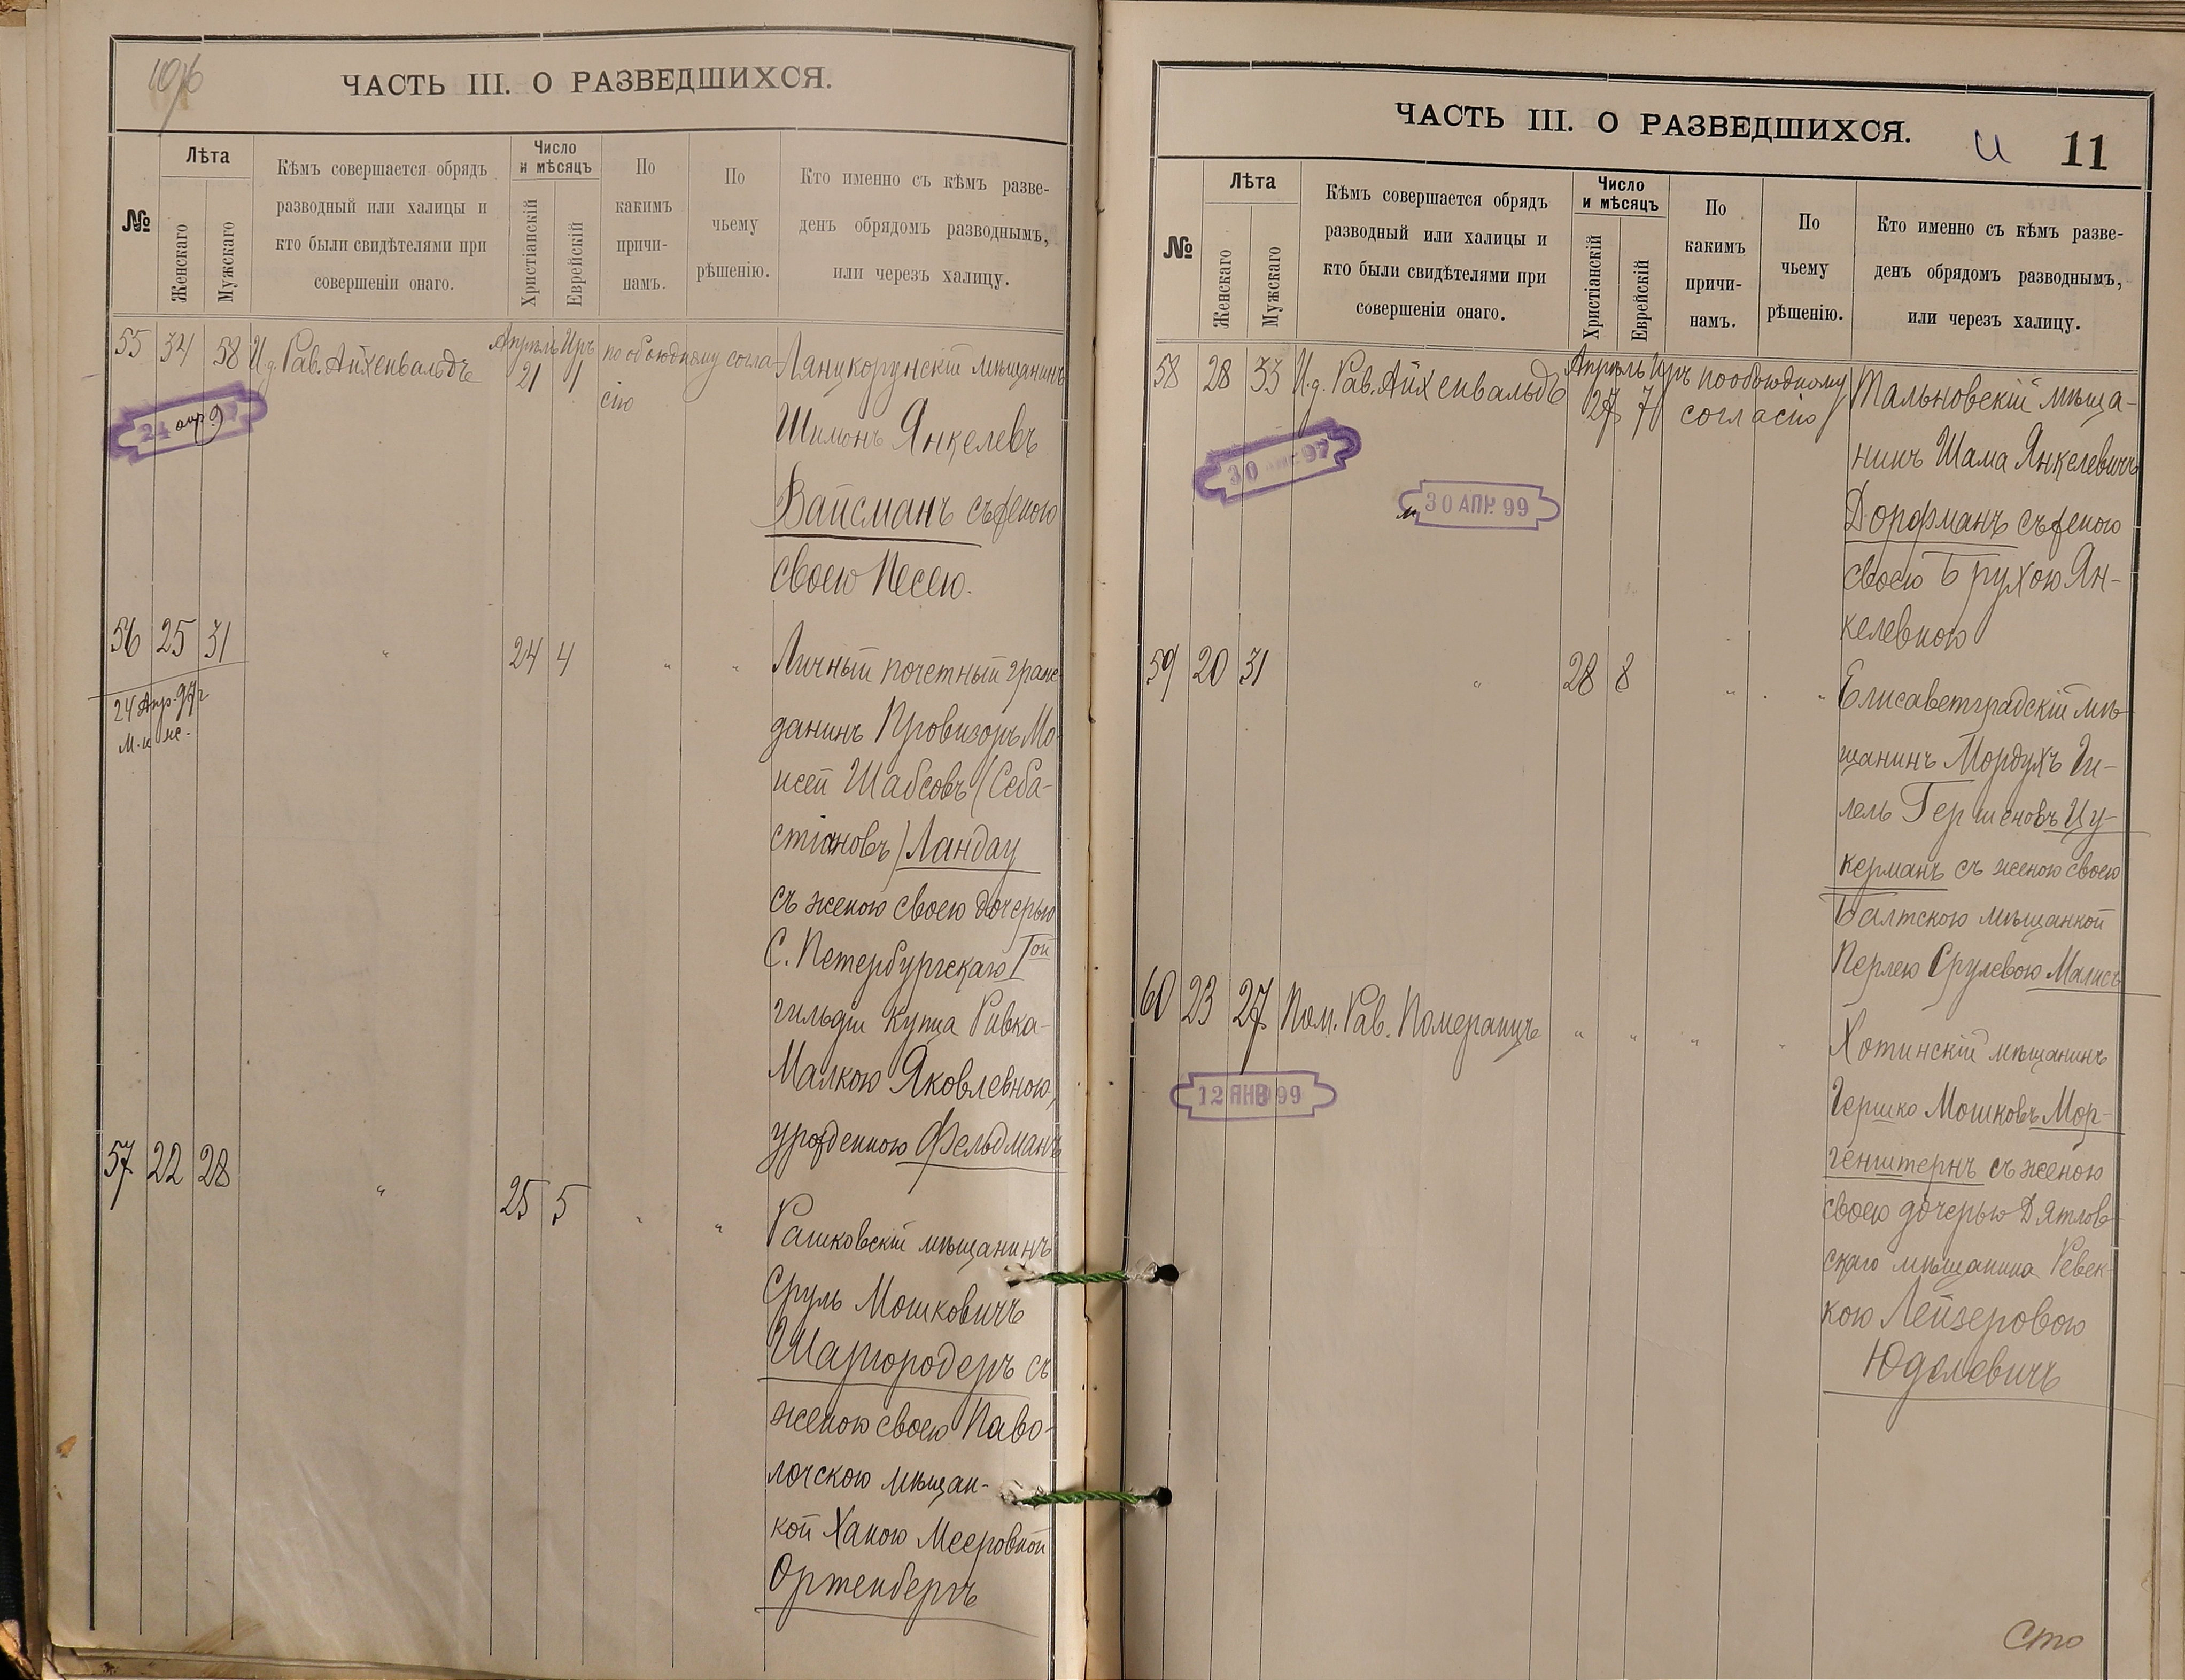 ЧАСТЬ III. О РАЗВЕДШИХСЯ.
№
Лѣта
Женскаго
Мужскаго
Кѣмъ совершается обрядъ
разводный или халицы и
кто были свидѣтелями при
совершеніи онаго.
Число
и мѣсяцъ
Христіанскій
Еврейскій
По
какимъ
причи-
намъ.
По
чьему
рѣшенію.
Кто именно съ кѣмъ разве-
денъ обрядомъ разводнымъ,
или черезъ халицу.
55 34 58 И.д. Рав. Айхенвальдъ Апрѣль 21 Иръ 1 по обоюдному согла-
сію
Ляцкорунскій мѣщанинъ
Шимонъ Янкелевъ
Вайсманъ съ женою
своею Песею.
24 апр 9
56 25 31 " 24 4 " "
24 Апр. 97 г
Личный почетный граж
данинъ Провизоръ Мо-
исей Шабсовъ (Себа-
стіановъ) Ландау
съ женою своею дочерью
С. Петербургскаго I ой
гильдіи купца Ривка-
Малкою Яковлевною,
урожденною Фельдманъ
57 22 28 " 25 5 " "
Рашковскій мѣщанинъ
Сруль Мошковичъ
Шаргородеръ съ
женою своею Паво-
лочскою мѣщан-
кой Ханою Мееровной
Ортенбергъ
ЧАСТЬ III. О РАЗВЕДШИХСЯ.
11
№
Лѣта
Женскаго
Мужскаго
Кѣмъ совершается обрядъ
разводный или халицы и
кто были свидѣтелями при
совершеніи онаго.
Число
и мѣсяцъ
Христіанскій
Еврейскій
По
какимъ
причи-
намъ.
По
чьему
рѣшенію.
Кто именно съ кѣмъ разве-
денъ обрядомъ разводнымъ,
или черезъ халицу.
58 28 33 И.д. Рав. Айхенвальдъ Апрѣль 27 Иръ 7 по обоюдному
согласію
Тальновскій мѣща-
нинъ Шама Янкелевичъ
Дорфманъ съ женою
своею Брухою Ян-
келевною
30 97
30 АПР. 99
59 20 31 " 28 8 " "
Елисаветградскій мѣ-
щанинъ Мордухъ Ги-
лель Гершеновъ Цу-
керманъ съ женою своею
Балтскою мѣщанкой
Перлею Срулевою Малисъ
60 23 27 Пом. Рав. Померанцъ " " " "
12 ЯНВ 99
Хотинскій мѣщанинъ
Гершко Мошковъ Мор-
генштернъ съ женою
своею дочерью Дятлов-
скаго мѣщанина Ревек-
кою Лейзеровою
Юделевичъ
Сто